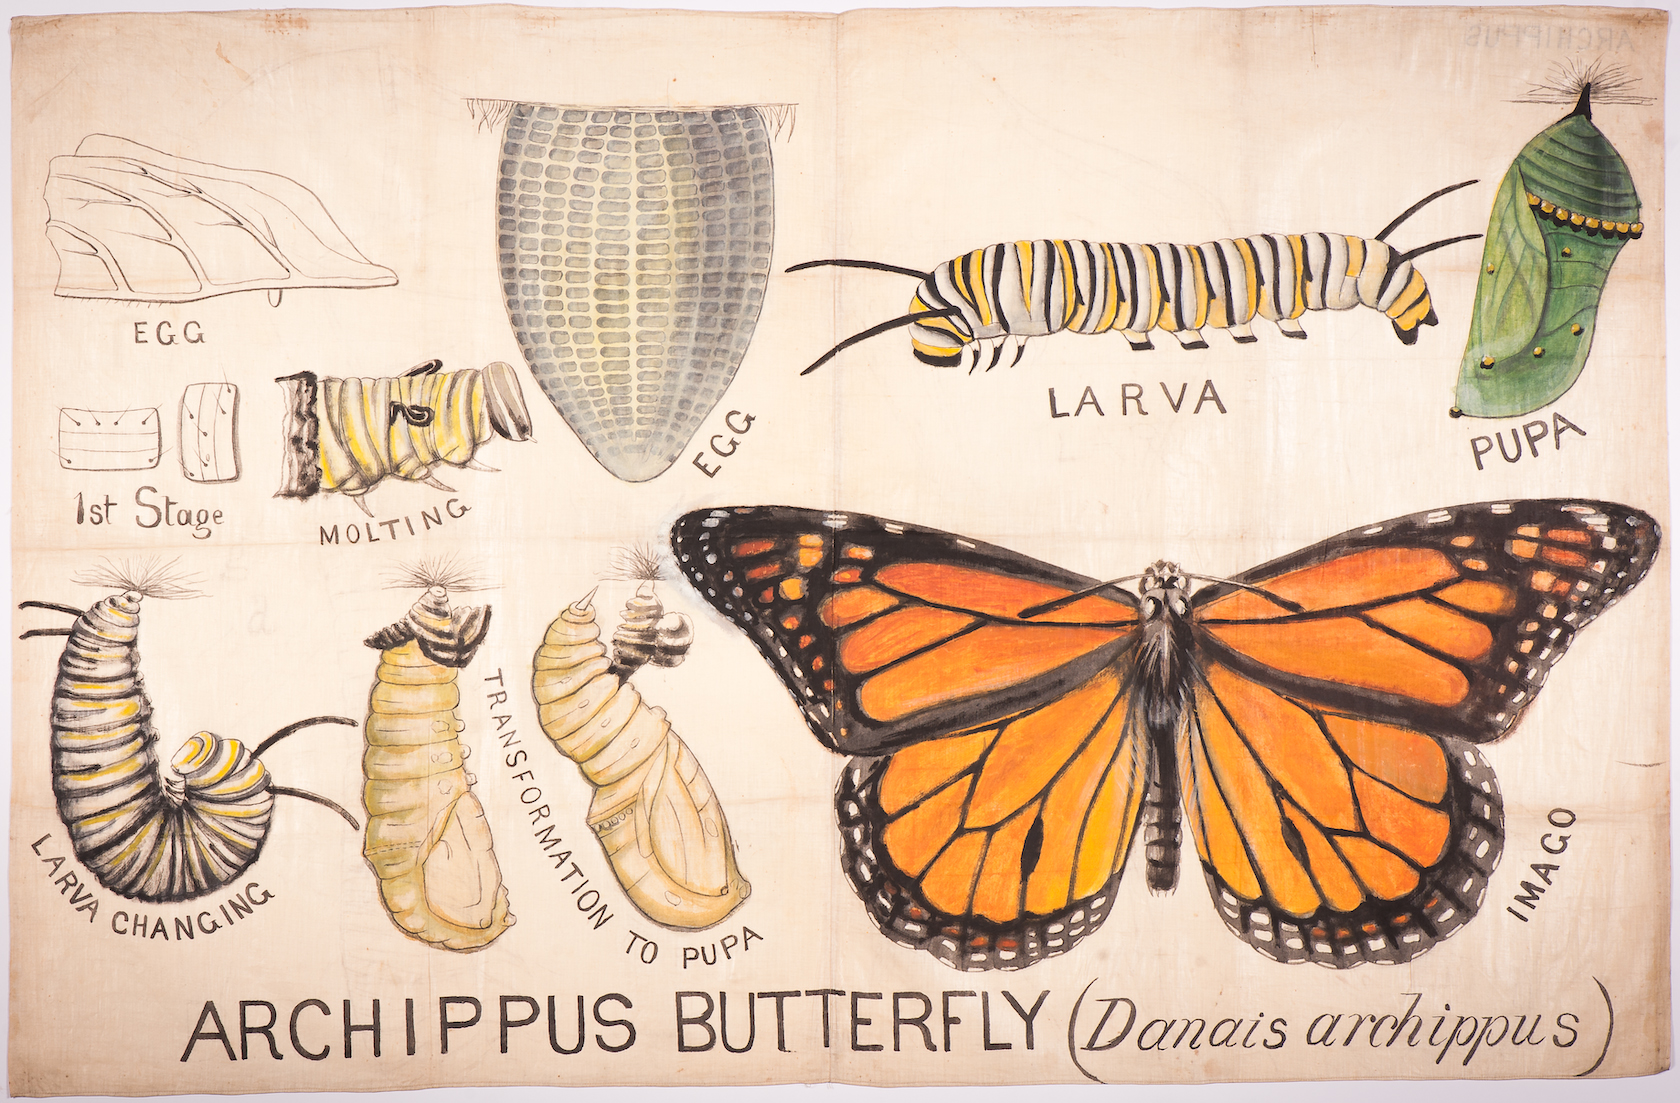 ARCHIPPUS
EGG
EGG
LARVA
PUPA
1st Stage
MOLTING
LARVA CHANGING
TRANSFORMATION TO PUPA
IMAGO
ARCHIPPUS BUTTERFLY (Danais archippus)